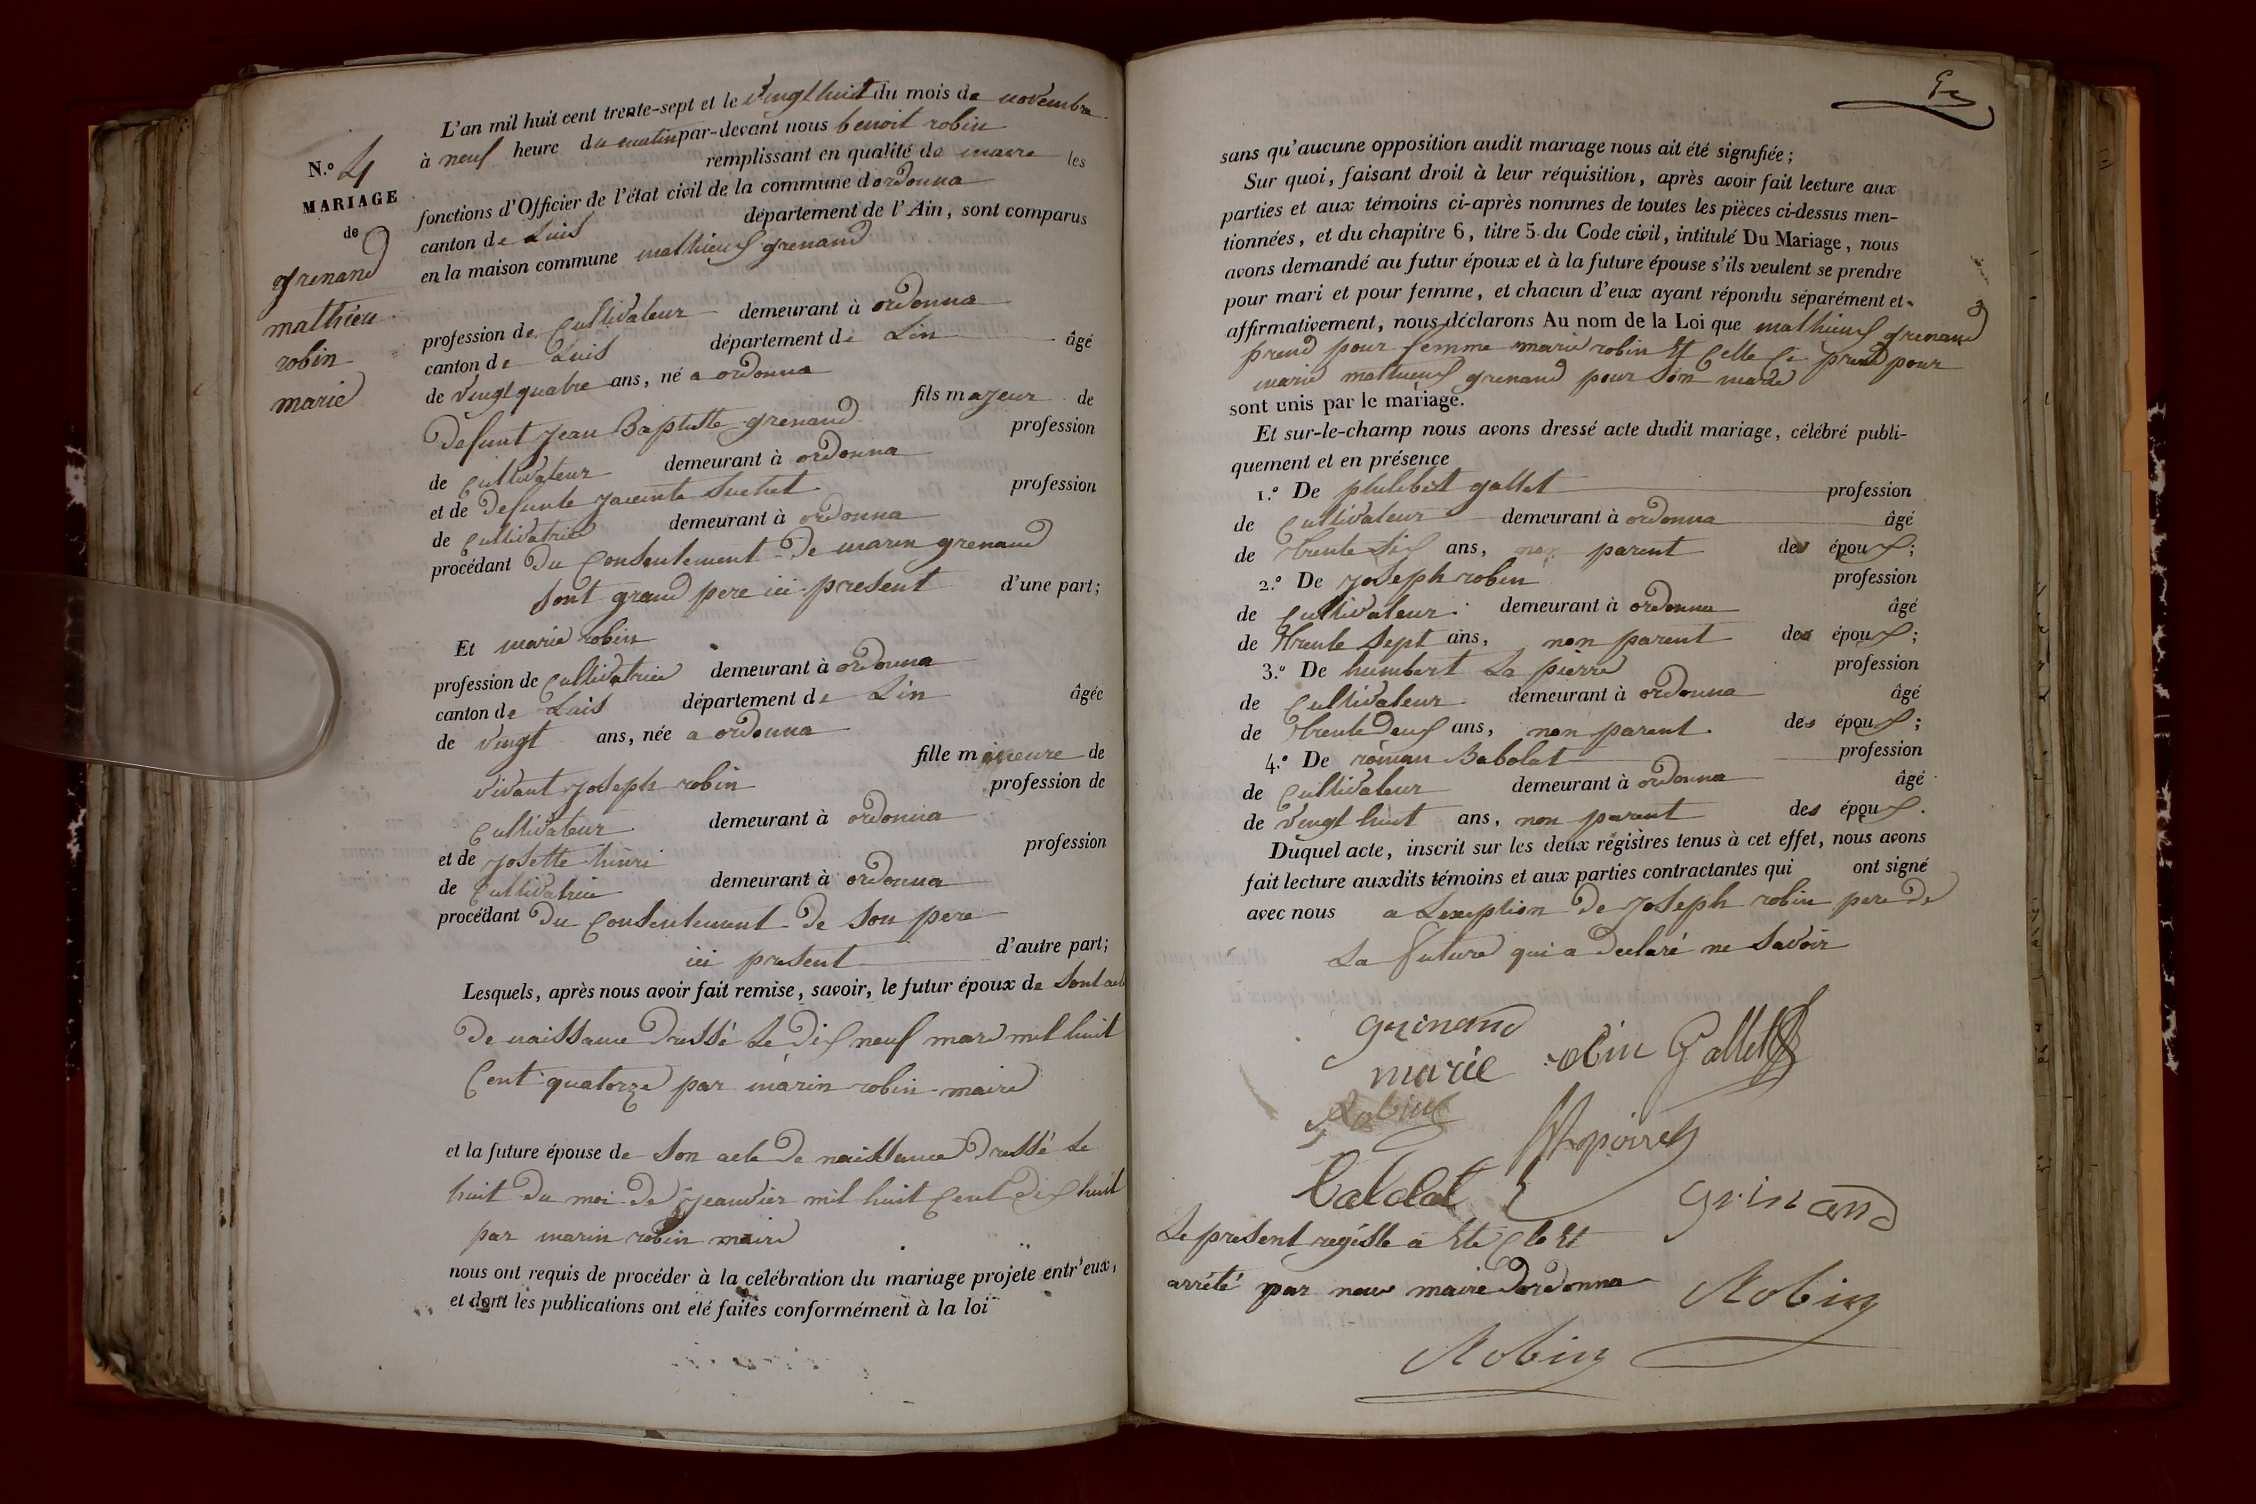 N.o 4
MARIAGE
de
grenand
mathieu
robin
marie
L'an mil huit cent trente-sept et le vingt huit du mois de novembre
à neuf heure du matin par-devant nous benoit robin
remplissant en qualité de maire les
fonctions d'Officier de l'état civil de la commune dordonna
canton de Luis département de l'Ain, sont comparus
en la maison commune mathieux grenand
profession de Cultivateur demeurant à ordonna
canton de Luis département de Lin âgé
de vingt quatre ans, né a ordonna
fils majeur de
Defunt jean Baptiste grenand profession
de Cultivateur demeurant à ordonna
et de Defunte jacinte Suchet profession
de Cultivatrice demeurant à ordonna
procédant Du Consentement De marin grenand
sont grand pere ici present d'une part;
Et marie robin
profession de Cultivatrice demeurant à ordonna
canton de Luis département de Lin âgée
de vingt ans, née a ordonna
fille mineure de
vivant joseph robin profession de
Cultivateur demeurant à ordonna
et de josette profession
de Cultivatrice demeurant à ordonna
procédant Du Consentement de Son pere
ici present d'autre part;
Lesquels, après nous avoir fait remise, savoir, le futur époux de Sont acte
De naissance Dressé Le Dix neuf mars mil huit
Cent quatorze par marin robin maire
et la future épouse de Son acte De naissance Dressé Le
huit Du moi De jeanvier mil huit Cent Dix huit
par marin robin maire
nous ont requis de procéder à la celébration du mariage projeté entr'eux,
et dont les publications ont été faites conformément à la loi
sans qu'aucune opposition audit mariage nous ait été signifiée;
Sur quoi, faisant droit à leur réquisition, après avoir fait lecture aux
parties et aux témoins ci-après nommes de toutes les pièces ci-dessus men-
tionnées, et du chapitre 6, titre 5 du Code civil, intitulé Du Mariage, nous
avons demandé au futur époux et à la future épouse s'ils veulent se prendre
pour mari et pour femme, et chacun d'eux ayant répondu séparément et
affirmativement, nous déclarons Au nom de la Loi que mathieux grenand
prend pour femme marie robin Et Celle Ci prend pour
marie mathieux grenand pour Son marie
sont unis par le mariage.
Et sur-le-champ nous avons dressé acte dudit mariage, célébré publi-
quement et en présence
1.o De philibert gallet profession
de Cultivateur demeurant à ordonna âgé
de trente Six ans, non parent des époux;
2.o De joseph robin profession
de Cultivateur demeurant à ordonna âgé
de trente Sept ans, non parent des époux;
3.o De humbert La pierre profession
de Cultivateur demeurant à ordonna âgé
de trente Deux ans, non parent des époux;
4.o De roman Babolat profession
de Cultivateur demeurant à ordonna âgé
de vingt huit ans, non parent des époux.
Duquel acte, inscrit sur les deux régistres tenus à cet effet, nous avons
fait lecture auxdits témoins et aux parties contractantes qui ont signé
avec nous a Lexeption De joseph robin pere De
La future qui a Declaré ne Savoir
grinand
marie robin Gallet
Robin
Babolat
grinand
Le present registe a Ete Clo Et
arrété par nous maire Dordonna
Robin
Robin